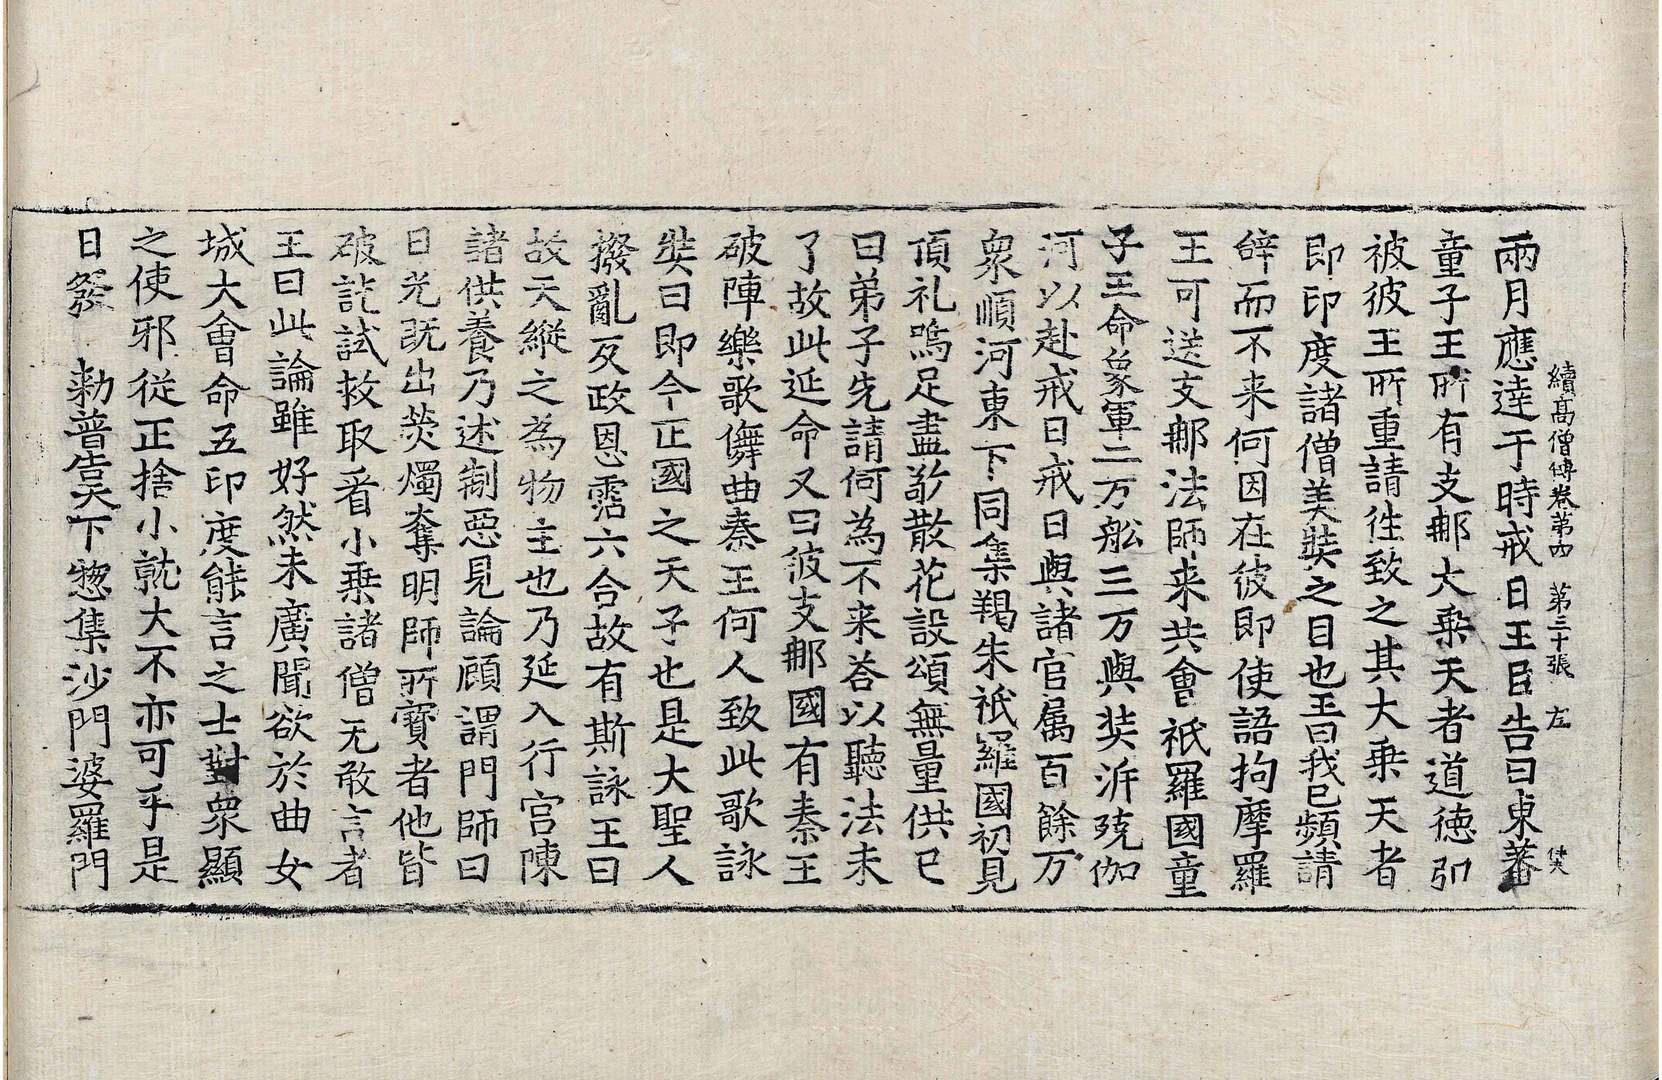 續高僧傳卷第四　第三十張　左
兩月應達于時戒日王臣告曰東蕃
童子王所有支那大乘天者道德弘
被彼王所重請往致之其大乘天者
即印度諸僧美奘之目也王曰我已頻請
辝而不来何因在彼即使語拘摩羅
王可送支那法師来共會祇羅國童
子王命象軍二万舩三万與奘泝殑伽
河以赴戒日戒日與諸官属百餘万
衆順河東下同集羯朱祇羅國初見
頂礼嗚足盡敬散花設頌無量供已
曰弟子先請何為不来荅以聽法未
了故此延命又曰彼支那國有秦王
破陣樂歌儛曲秦王何人致此歌詠
奘曰即今正國之天子也是大聖人
撥亂反政恩霑六合故有斯詠王曰
故天縱之為物主也乃延入行宮陳
諸供養乃述制惡見論顧謂門師曰
日光既出熒燭奪明師所寶者他皆
破訖試救取看小乗諸僧无敢言者
王曰此論雖好然未廣聞欲於曲女
城大會命五印度能言之士對衆顯
之使邪從正捨小就大不亦可乎是
日發　勑普告天下惣集沙門婆羅門